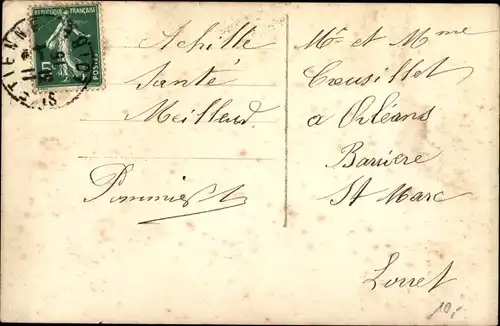 REPUBLIQUE FRANÇAISE
POSTES
Achille
Santé
Meilleur
Pommier
Mr et Mme
Cousillet
a Orléans
Barriere
St Marc
Loiret